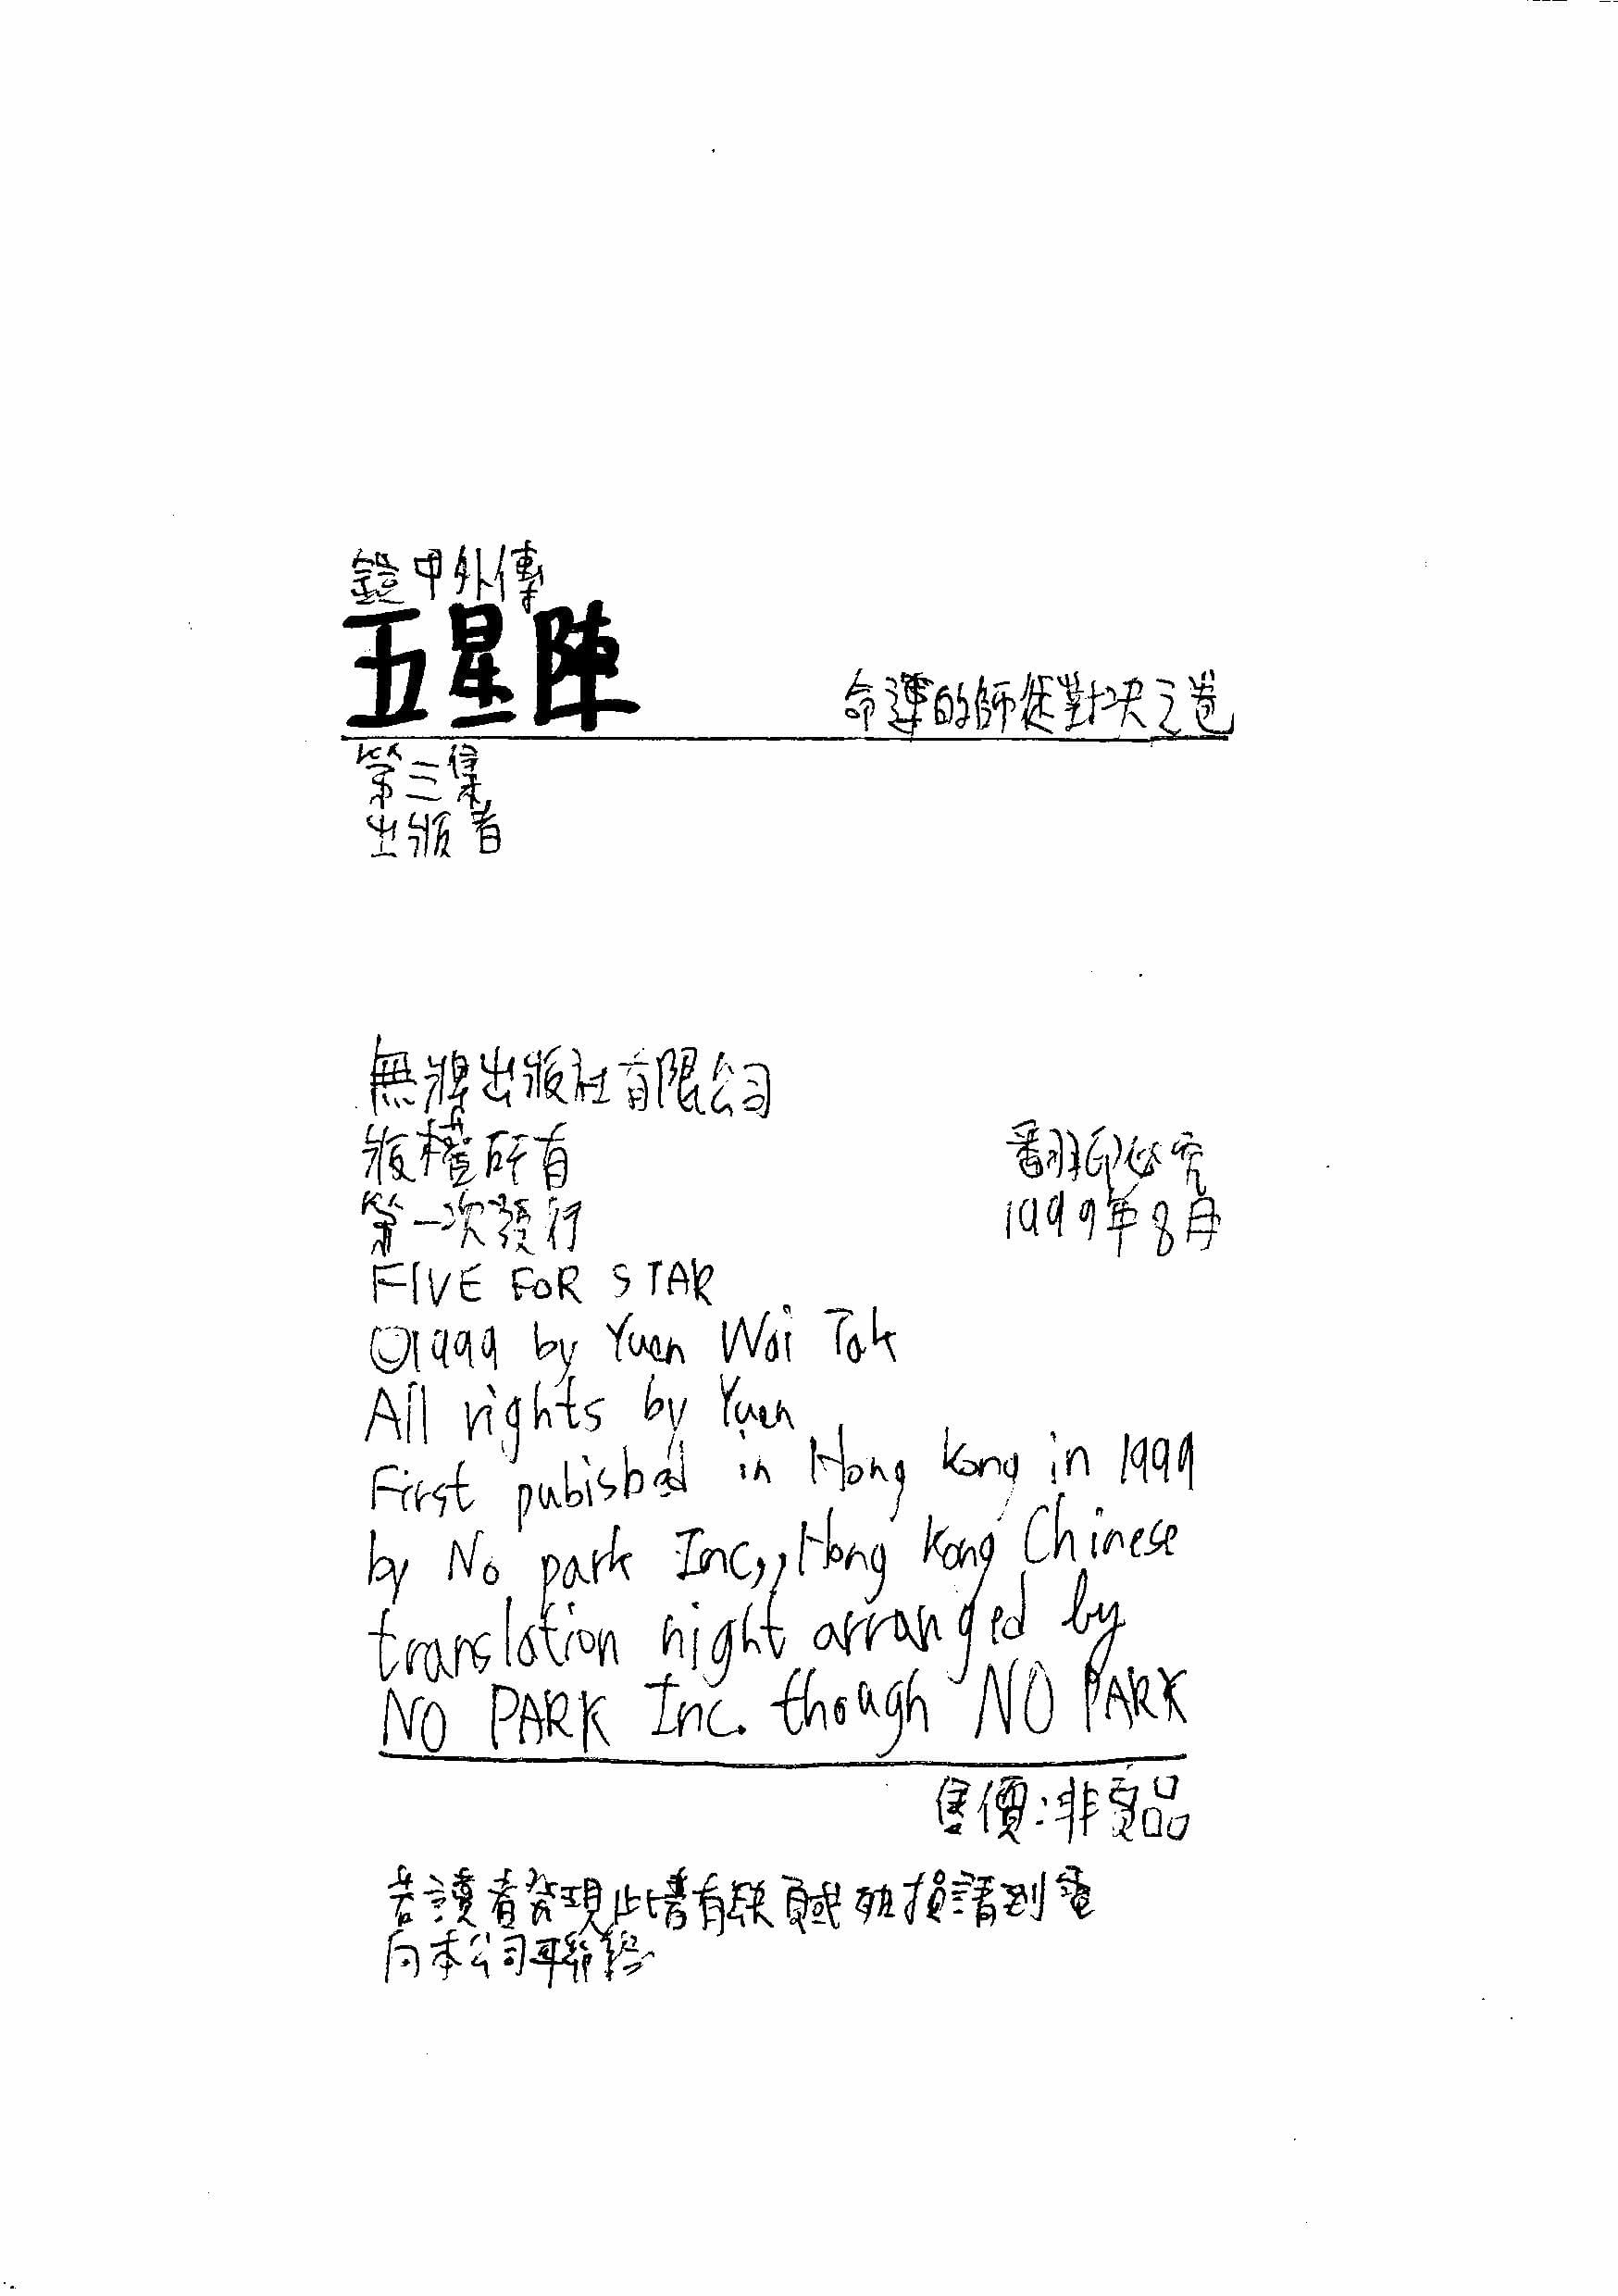 鎧甲外傳
五星陣
命運的師徒對決之卷
第三集
出版者
無牌出版社有限公司
版權所有 翻印必究
第一次發行 1999年8月
FIVE FOR STAR
☺1999 by Yuen Wai Tak
All rights by Yuen
First pubisbed in Hong Kong in 1999
by No park Inc,, Hong Kong Chinese
translation night arranged by
NO PARK Inc. though NO PARK
售價:非賣品
若讀者發現此書有缺頁或破損請到電
向本公司聯絡